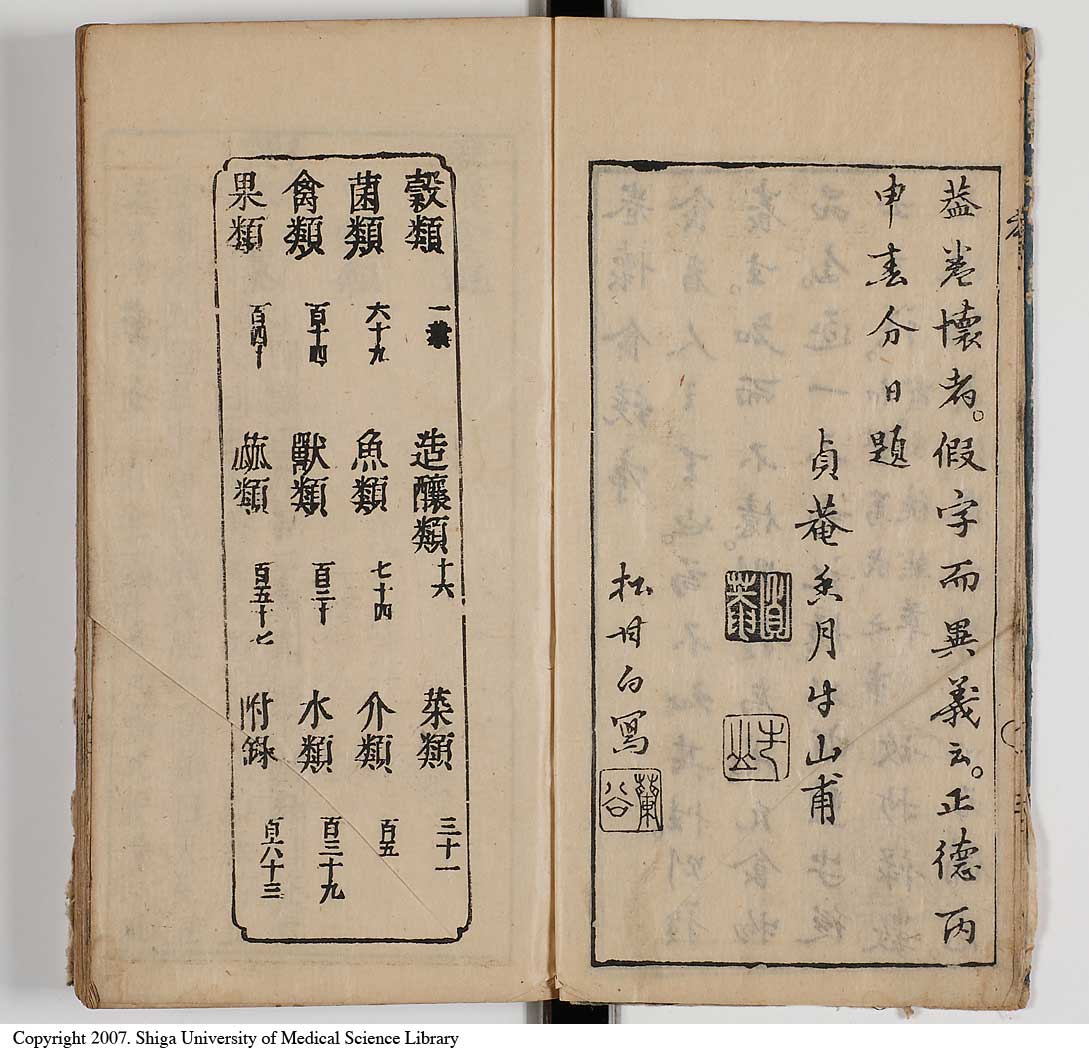 蓋卷懷者。假字而異義云。正德丙
申春分日題
貞菴香月牛山甫
貞菴
牛山
松井白写
蘭谷
穀類 一葉 造釀類 十六 菜類 三十一
菌類 六十九 魚類 七十四 介類 百五
禽類 百十四 獸類 百三十 水類 百三十九
果類 百四十 蓏類 百五十七 附録 百六十三
Copyright 2007. Shiga University of Medical Science Library